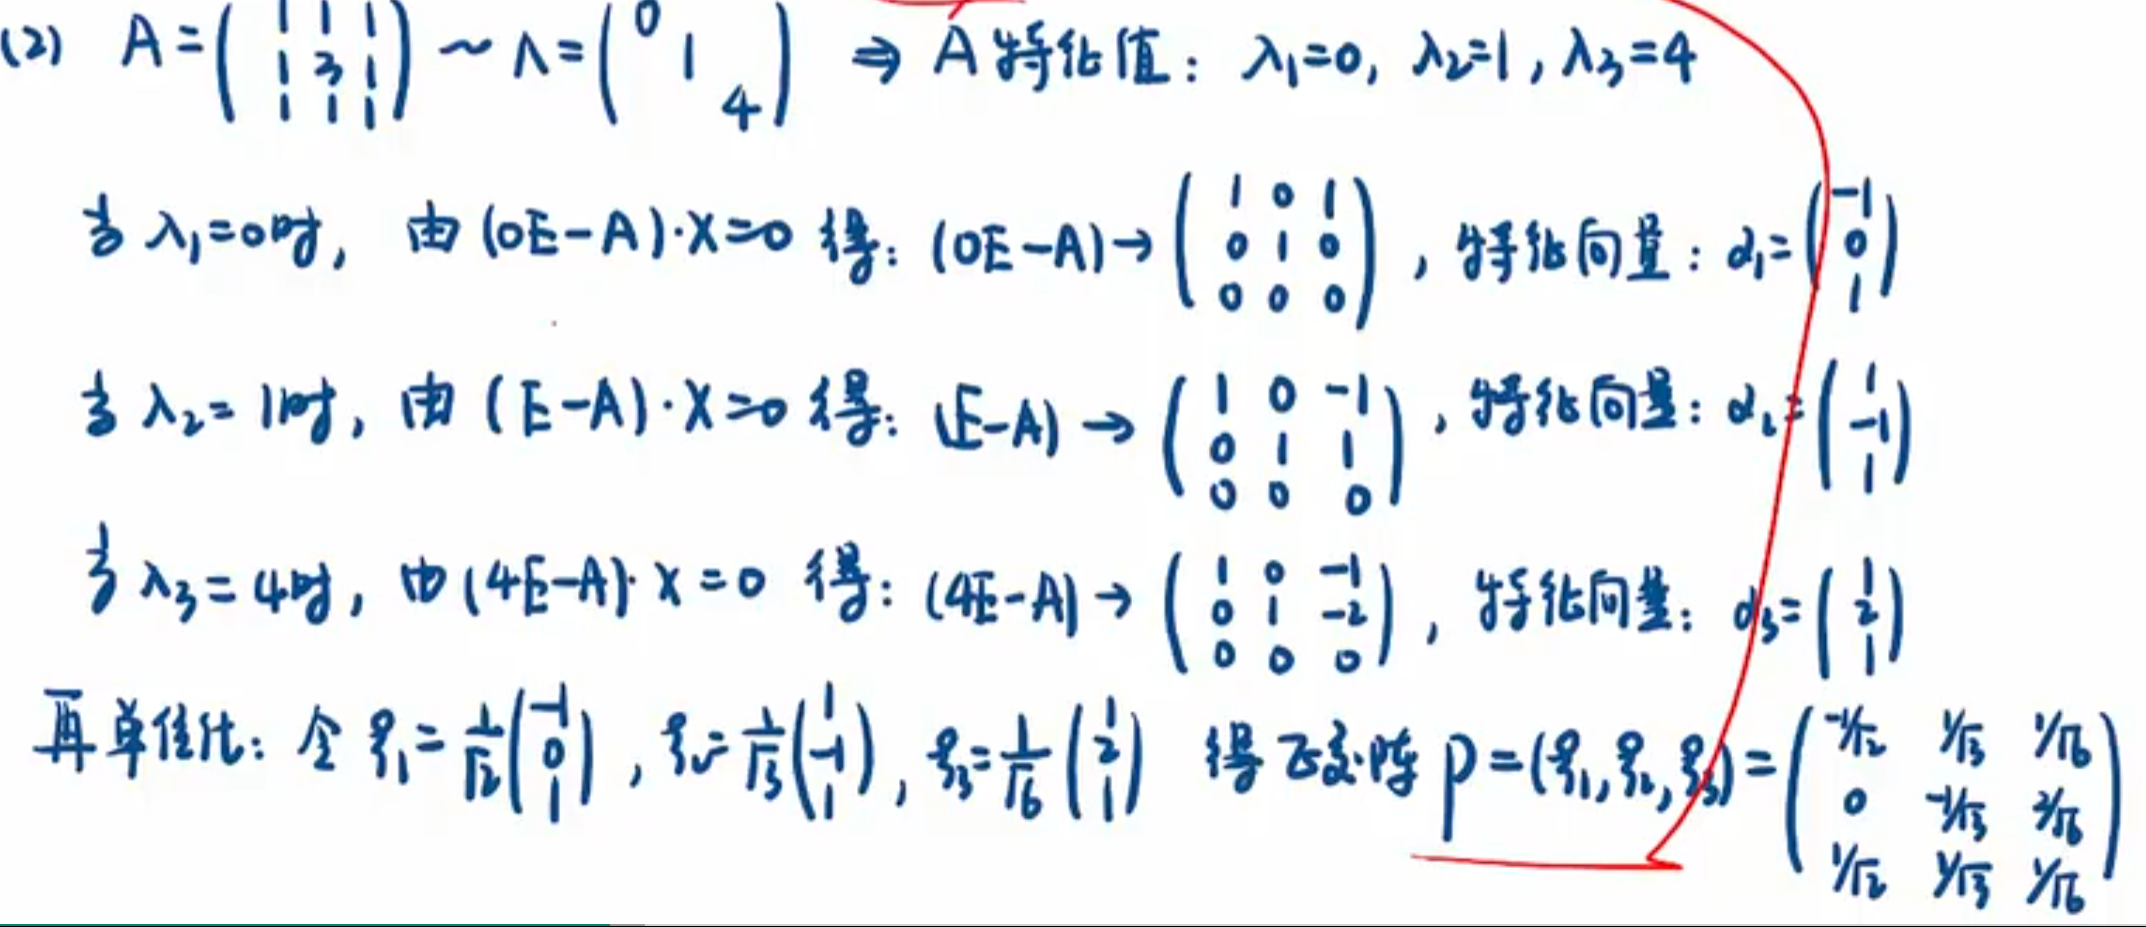 (2) A=(1 1 1; 1 3 1; 1 1 1) ~ Λ=(0 1 4) ⇒ A特征值: λ₁=0, λ₂=1, λ₃=4
当 λ₁=0时, 由 (0E-A)·X=0 得: (0E-A)→(1 0 1; 0 1 0; 0 0 0), 特征向量: α₁=(-1; 0; 1)
当 λ₂=1时, 由 (E-A)·X=0 得: (E-A)→(1 0 -1; 0 1 1; 0 0 0), 特征向量: α₂=(1; -1; 1)
当 λ₃=4时, 由 (4E-A)·X=0 得: (4E-A)→(1 0 -1; 0 1 -2; 0 0 0), 特征向量: α₃=(1; 2; 1)
再单位化: 令 ξ₁=1/√2(-1; 0; 1), ξ₂=1/√3(1; -1; 1), ξ₃=1/√6(1; 2; 1) 得正交阵 P=(ξ₁,ξ₂,ξ₃)=(-1/√2 1/√3 1/√6; 0 -1/√3 2/√6; 1/√2 1/√3 1/√6)